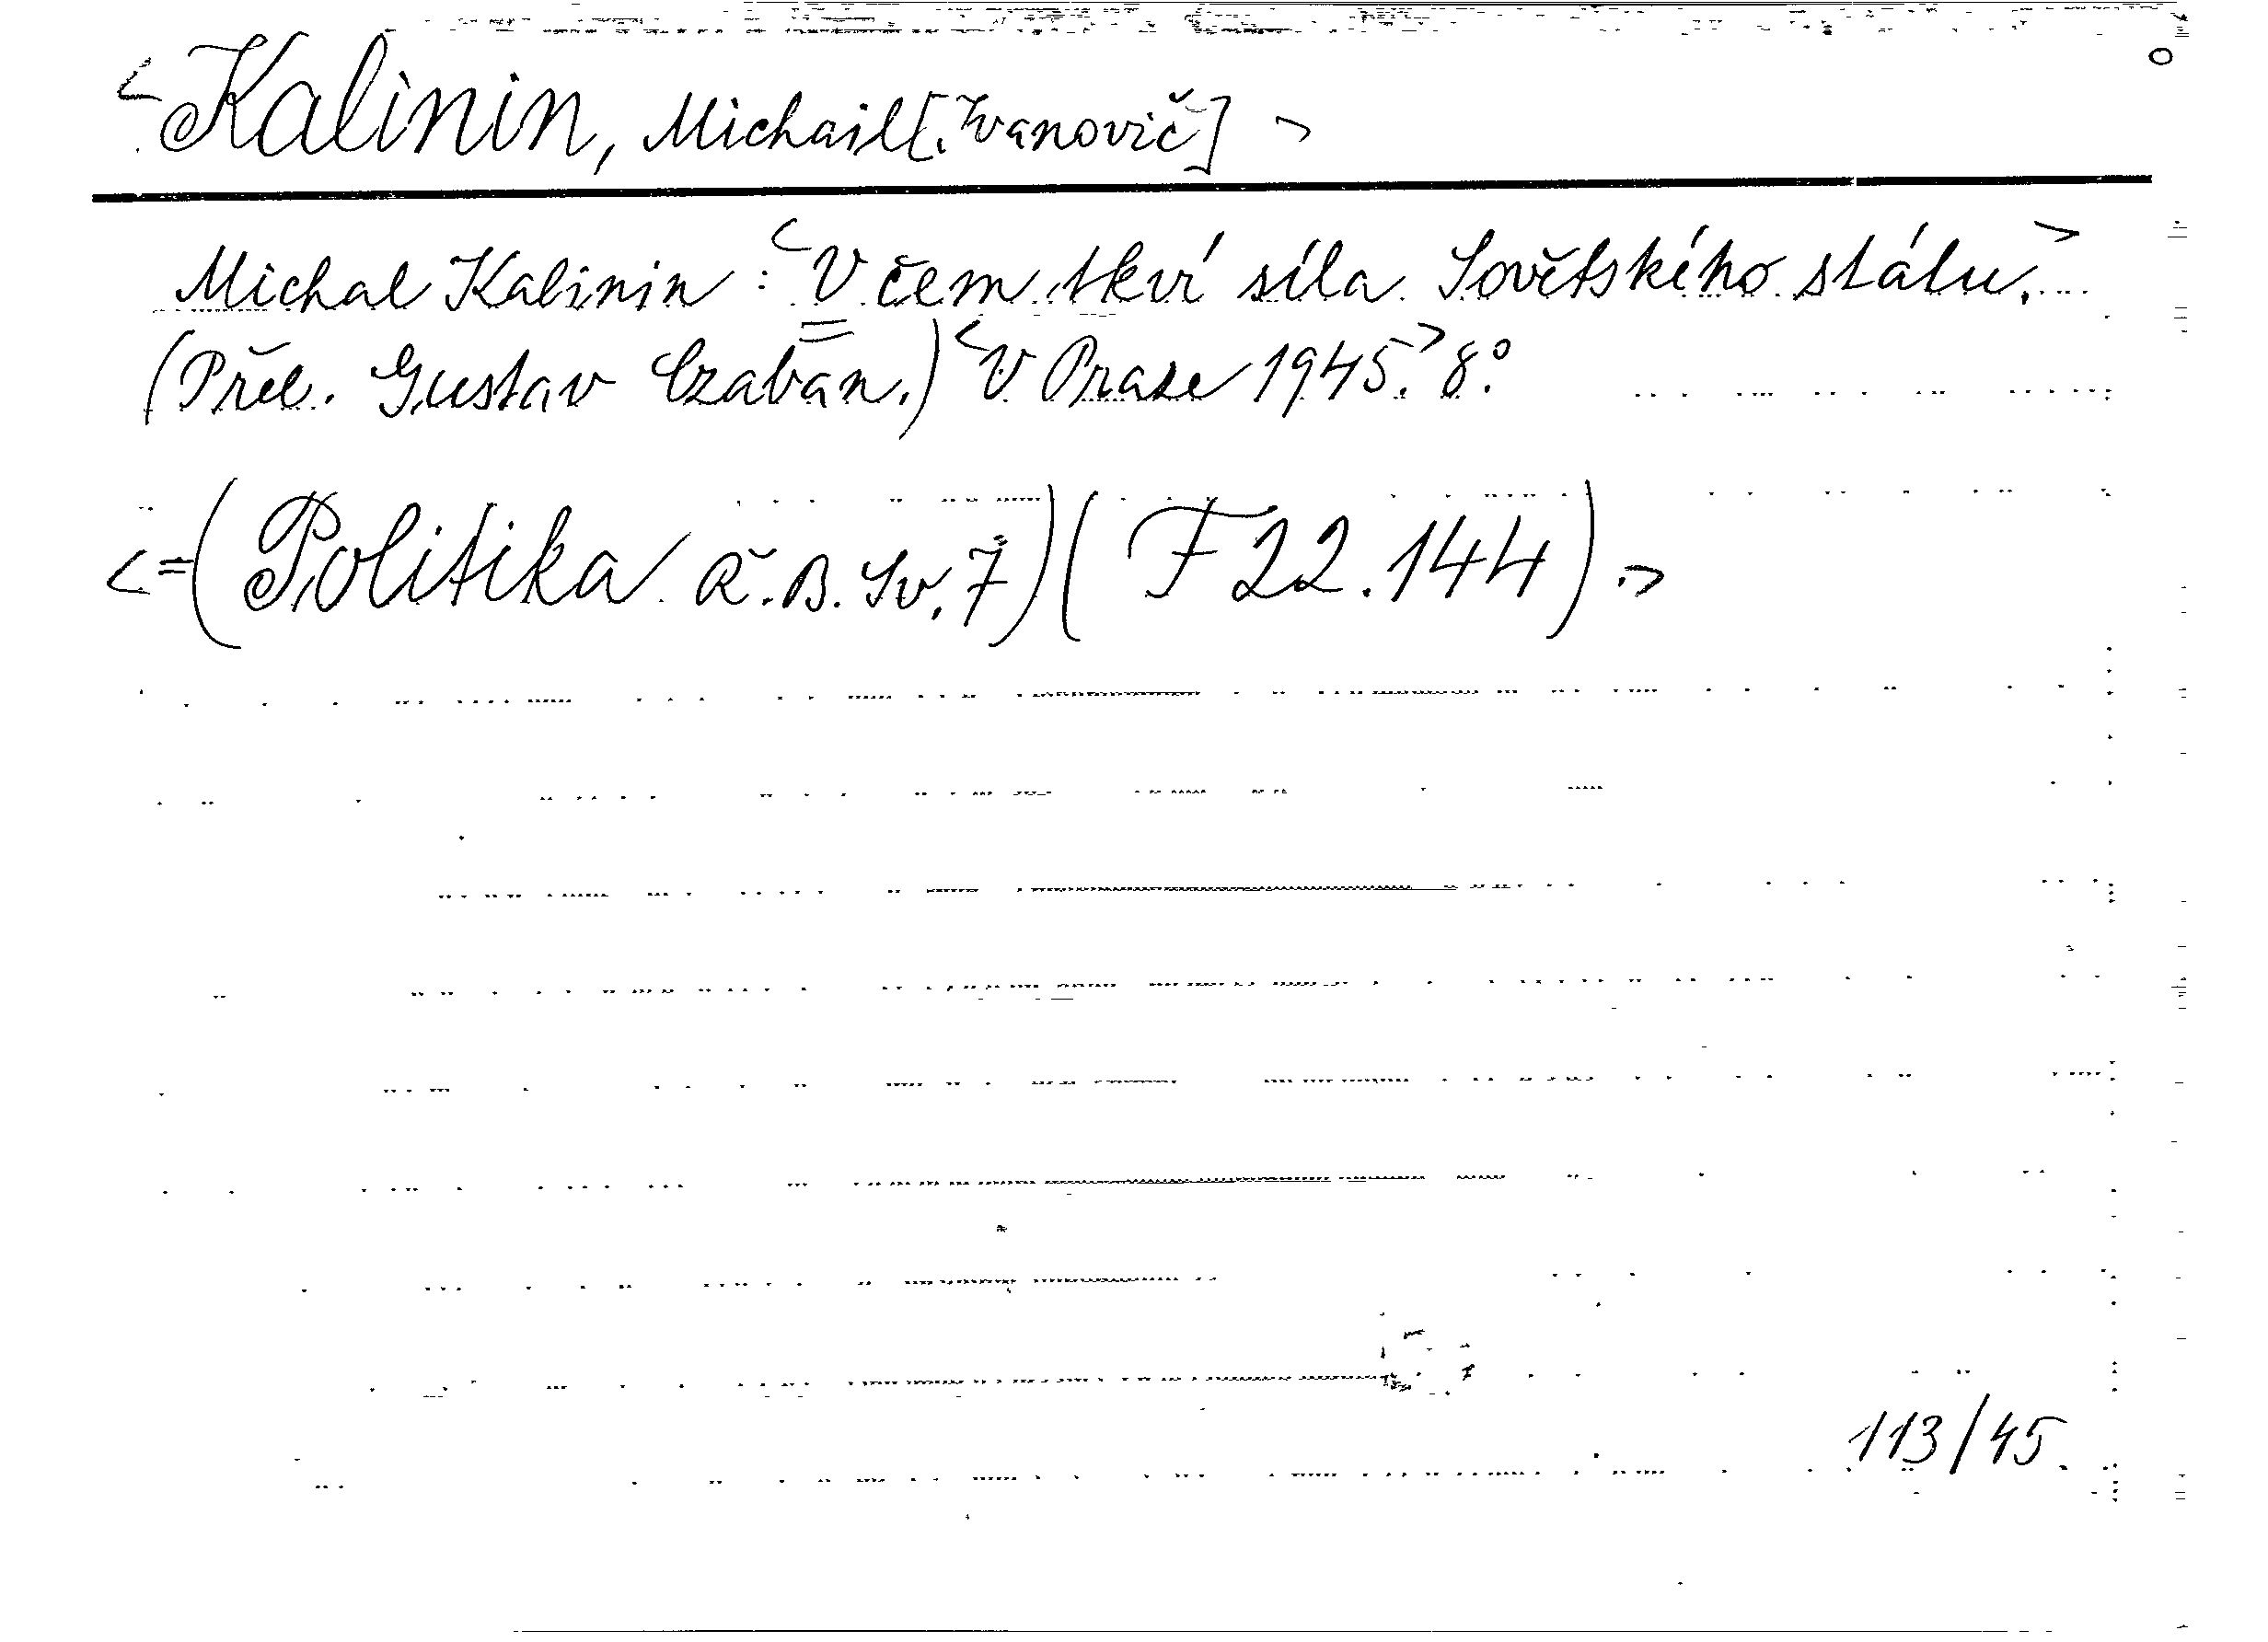 <Kalinin, Michail [Ivanovič]>
Michal Kalinin: <V čem tkví síla Sovětského státu.>
(Přel. Gustav Czaban.) <V Praze 1945.> 8°.
<=(Politika Ř.B. Sv. 7)(F 22.144).>
113/45.